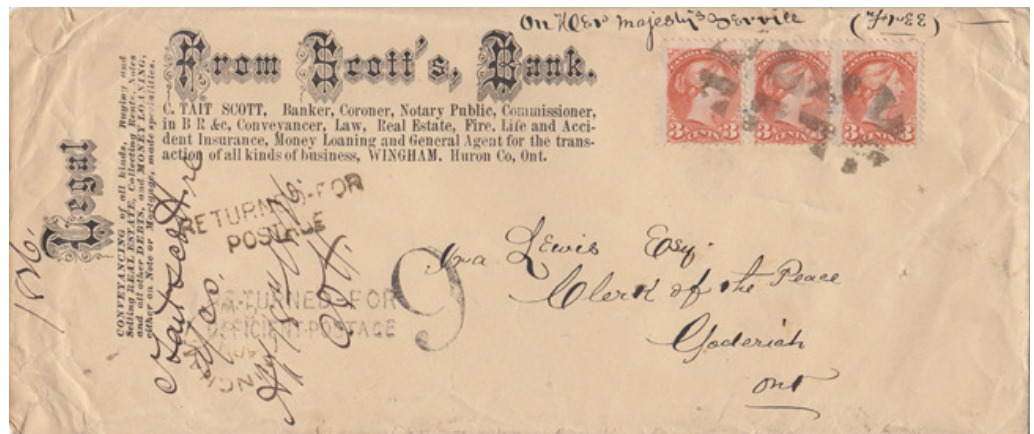 On Her Majesty's Service (Free)
From Scott's Bank.
C. TAIT SCOTT, Banker, Coroner, Notary Public, Commissioner,
in B R &c, Conveyancer, Law, Real Estate, Fire, Life and Acci-
dent Insurance, Money Loaning and General Agent for the trans-
action of all kinds of business, WINGHAM. Huron Co, Ont.
Legal
CONVEYANCING of all kinds, Buying and
Selling REAL ESTATE, Collecting Rents, Notes
and all other DEBTS, and MONEY LOANING,
either on Note or Mortgage, made specialities.
CANADA POSTAGE
3 CENTS 3
3 CENTS 3
3 CENTS 3
RETURNED FOR
POSTAGE
RETURNED FOR
DEFICIENT POSTAGE
WINGHAM
9
Ira Lewis Esq.
Clerk of the Peace
Goderich
Ont